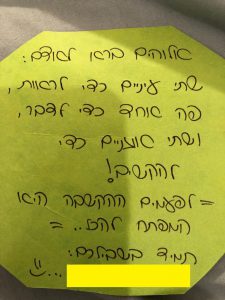 אלוהים ברא לאדם:
שתי עיניים כדי לראות,
פה אחד כדי לדבר,
ושתי אוזניים כדי
להקשיב!
= לפעמים ההקשבה היא
המפתח להכל.. =
תמיד בשבילכם:
...